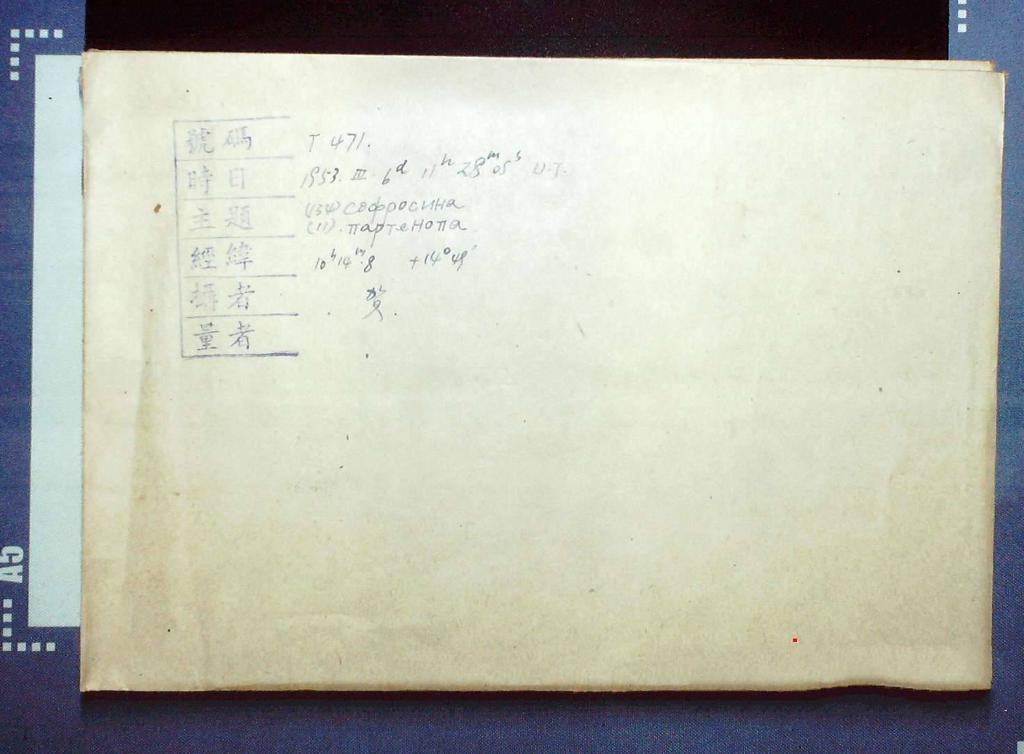 號碼 T 471.
時日 1953. III. 6d 11h 28m 05s U.T.
主題 (134) софросина
(11). партенопа
經緯 10h14m.8 +14°49'
攝者 贺.
量者
A5